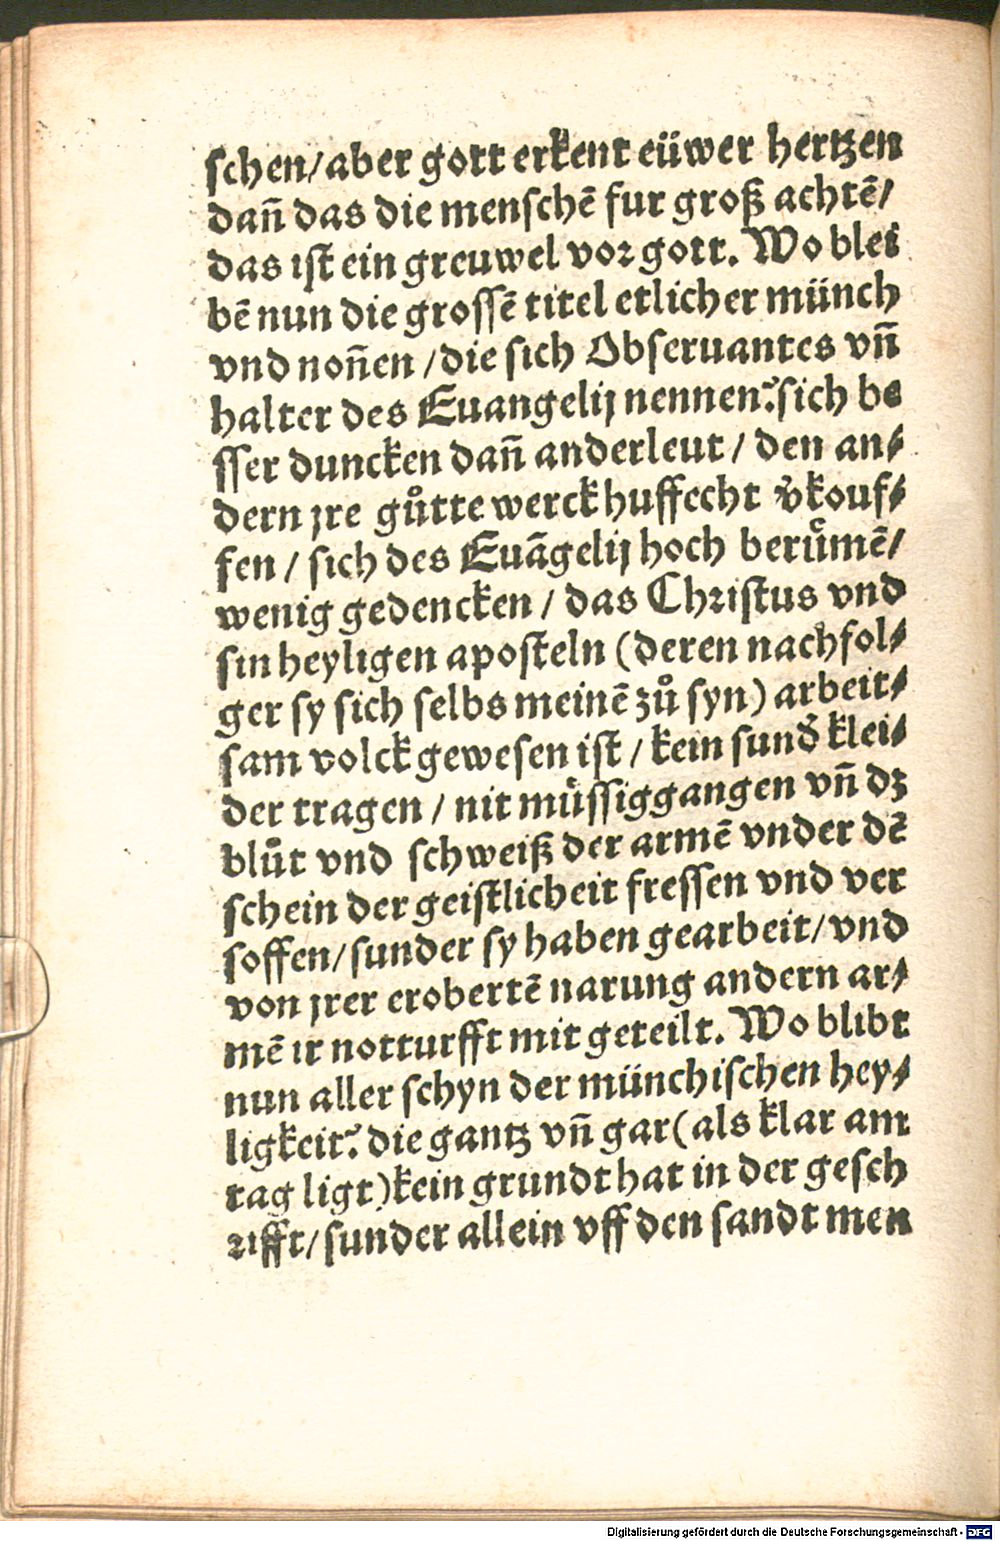 schen/aber gott erkent eüwer hertzen
dañ das die menschē fur groß achtē/
das ist ein greuwel vor gott. Wo blei
bē nun die grossē titel etlicher münch
vnd noñen /die sich Obseruantes vñ
halter des Euangelij nennen? sich be
sser duncken dañ anderleut / den an⸗
dern jre gůtte werck huffecht v̄kouf⸗
fen / sich des Euãgelij hoch berůmē/
wenig gedencken / das Christus vnd
sin heyligen aposteln (deren nachfol⸗
ger sy sich selbs meinē zů syn) arbeit⸗
sam volck gewesen ist / kein sund̄ klei⸗
der tragen / nit můssiggangen vñ dz
blůt vnd schweiß der armē vnder dē
schein der geistlicheit fressen vnd ver
soffen/sunder sy haben gearbeit/vnd
von jrer erobertē narung andern ar⸗
mē ir notturfft mit geteilt. Wo blibt
nun aller schyn der münchischen hey⸗
ligkeit? die gantz vñ gar (als klar am
tag ligt) kein grundt hat in der gesch
rifft/sunder allein vff den sandt men
Digitalisierung gefördert durch die Deutsche Forschungsgemeinschaft - DFG